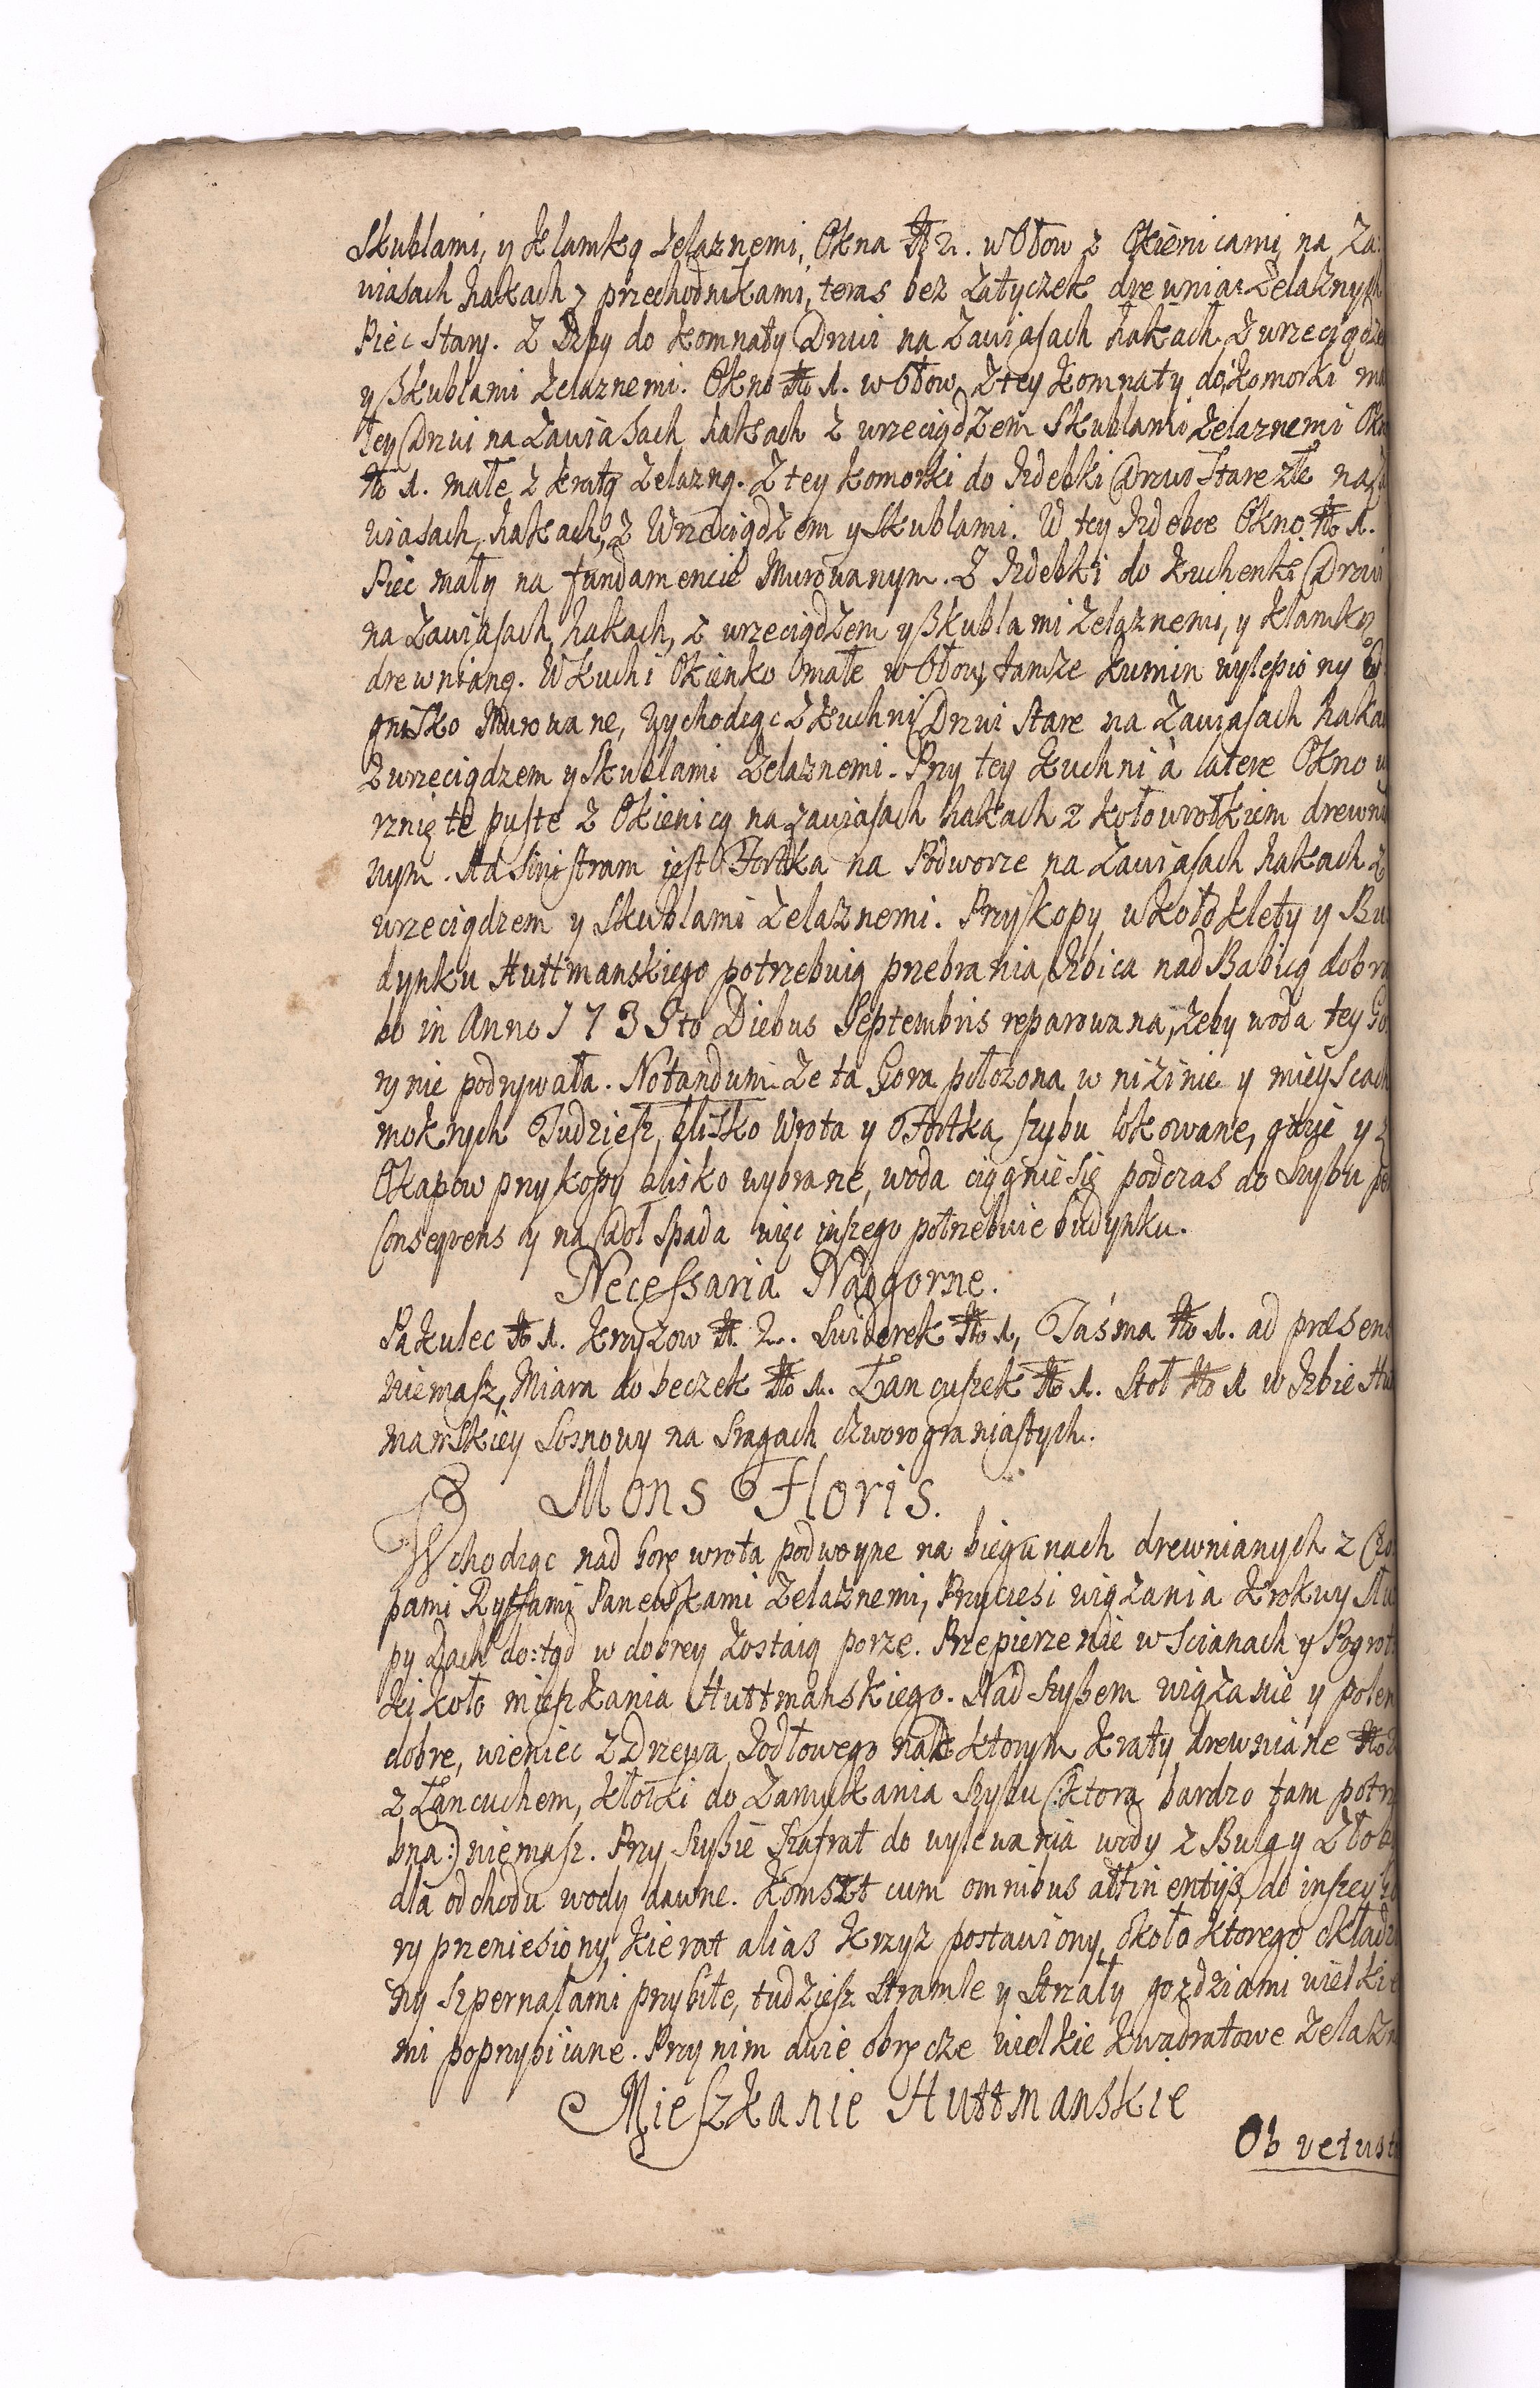 Skublami, y klamką żelaznemi, Okna No 2. w Ołow z Okienicami na Za:
wiasach hakach z przechodnikami, teras bez zatyczek drewnia: żelaznych
Piec stary. Z Izby do komnaty Drzwi na zawiasach hakach z wrzeciądze
y Skublami żelaznemi. Okno No 1. w Ołow, z tey komnaty do komorki ma
łey Drzwi na zawiasach hakach z wrzeciądzem Skublami żelaznemi Okn
No 1. małe z kratą żelazną. Z tey komorki do Izdebki Drzwi stare złe na za
wiasach, hakach, z wrzeciądzem y Skublami. W tey Izdebce Okno No 1.
Piec mały na fundamencie Murowanym. Z Izdebki do kuchenki Drzwi
na zawiasach, hakach, z wrzeciądzem y Skublami żelaznemi, y klamką
drewnianą. W kuchi Okienko małe w Ołow, tamże kumin wylepiony O
gnisko Murowane, wychodząc z kuchni Drzwi stare na zawiasach haka
z wrzeciądzem y Skublami żelaznemi. Przy tey kuchni à latere Okno wy
rznięte puste z Okienicą na zawiasach hakach z kołowrotkiem drewnia
nym. Ad sinistram iest Fortka na Podworze na zawiasach hakach z
wrzeciądzem y Skublami żelaznemi. Przykopy wkoło klety y Bu
dynku Huttmanskiego potrzebuią przebrania, Izbica nad Babicą dobra
bo in Anno 1739to Diebus Septembris reparowana, żeby woda tey Go
ry nie podrywała. Notandum że ta Gora położona w nizinie y mieyscach
mokrych Tudziesz blisko Wrota y Fortka szybu lokowane, gdzie y z
Okapow przykopy blisko wybrane, woda ciągnie się podczas do Szybu per
Consequens y na doł spada więc inszego potrzebuie budynku.
Necessaria Nadgorne.
Sąkulec No 1. krzyzow No 2. Swiderek No 1, Taśma No 1. ad præsens
niemasz, Miara do beczek No 1. Łancuszek No 1. Stoł No 1 w Izbie Hu
manskiey Sosnowy na Sragach czworograniastych.
Mons Floris.
Wchodząc nad Gorę wrota podwoyne na biegunach drewnianych z Czo
pami Ryffami Panewkami żelaznemi, Przyciesi wiązania krokwy Słu
py Dach do:tąd w dobrey zostaią porze. Przepierzenie w Scianach y Pogrot
ki koło mieszkania Huttmanskiego. Nad Szybem wiązanie y polen
dobre, wieniec z Drzewa Jodłowego na ktorym kraty drewniane No 2
z Łancuchem, kłotki do zamykania Szybu (:ktora bardzo tam potrze
bna:) niemasz. Przy Szybie Szafrat do wylewania wody z Bulg y Złoby
dla odchodu wody dawne. Komszt cum omnibus attinentijs, do inszey Go
ry przeniesiony, kierat alias krzyż postawiony, około ktorego okładzi
ny szpernalami przybite, tudziesz Stramle y Strzały gozdziami wielkie
mi poprzybiiane. Przy nim dwie obręcze wielkie kwadratowe żelazne
Mieszkanie Huttmanskie
Ob vetust